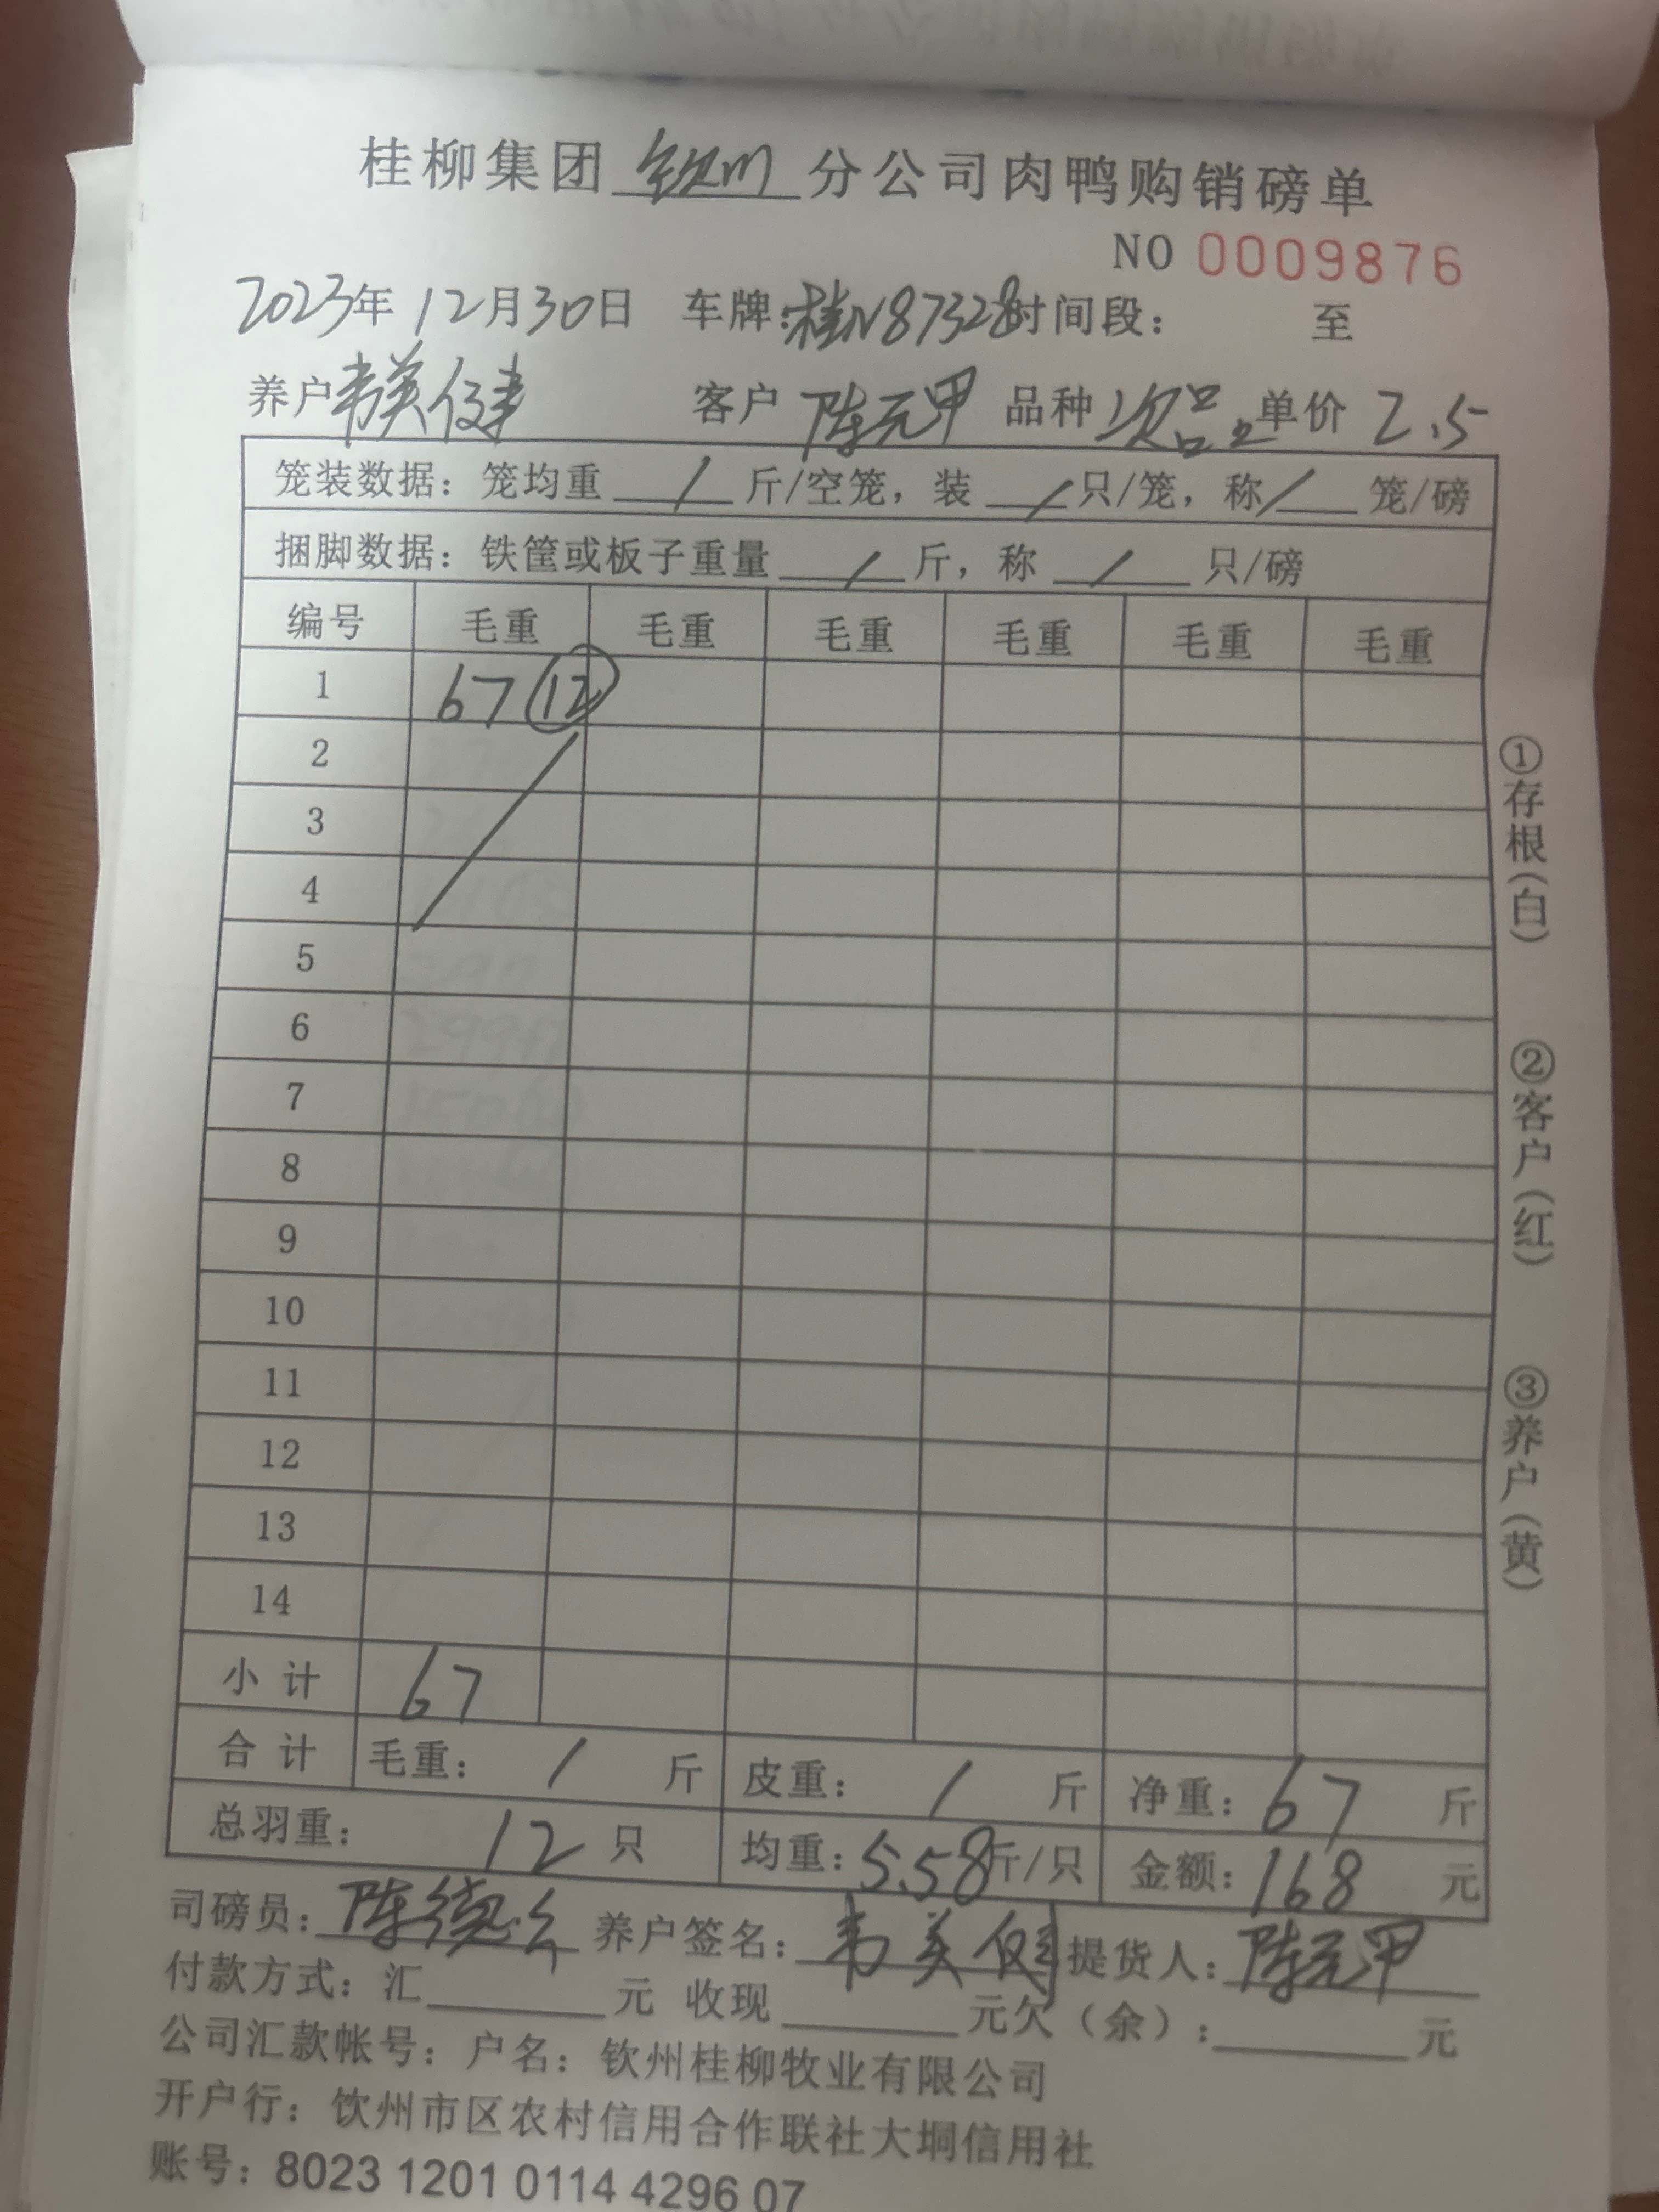 桂柳集团 钦州 分公司肉鸭购销磅单
NO 0009876
2023年 12月30日 车牌：桂N87328 时间段： 至
养户 韦美健 客户 陈元甲 品种 次品 单价 2.5
笼装数据：笼均重 / 斤/空笼，装 / 只/笼，称 / 笼/磅
捆脚数据：铁筐或板子重量 / 斤，称 / 只/磅
编号 毛重 毛重 毛重 毛重 毛重 毛重
1 67 12
2
3
4
5
6
7
8
9
10
11
12
13
14
小计 67
合计 毛重： / 斤 皮重： / 斤 净重： 67 斤
总羽重： 12 只 均重：5.58斤/只 金额：168 元
司磅员：陈德 养户签名：韦美健 提货人：陈元甲
付款方式：汇 元 收现 元欠（余）： 元
公司汇款帐号：户名：钦州桂柳牧业有限公司
开户行：钦州市区农村信用合作联社大垌信用社
账号：8023 1201 0114 4296 07
①存根(白)
②客户(红)
③养户(黄)